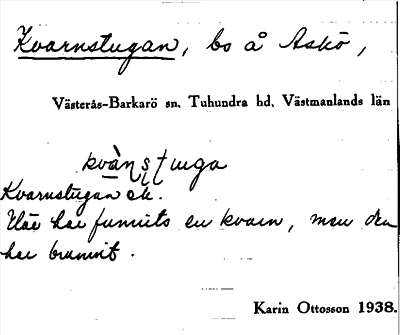 Kvarnstugan, bs å Askö,
Västerås-Barkarö sn. Tuhundra hd. Västmanlands län
kvà̠ṇṣṭuga
Kvarnstugan ek.
Där har funnits en kvarn, men den
har brunnit.
Karin Ottosson 1938.